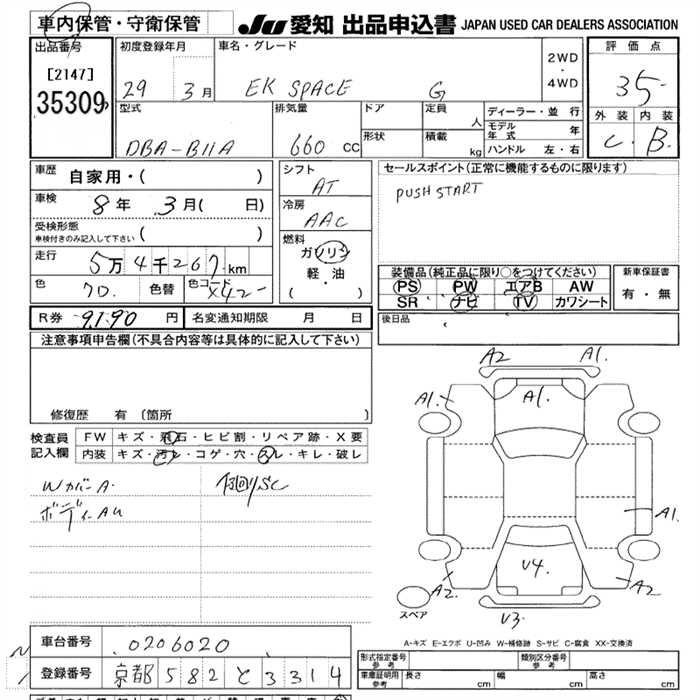 車内保管・守衛保管 JU 愛知 出品申込書 JAPAN USED CAR DEALERS ASSOCIATION
出品番号 初度登録年月 車名・グレード 評価点
[2147] 29 3月 EK SPACE G 2WD・4WD 35-
35309 型式 排気量 ドア 定員 人 ディーラー・並行 外装 内装
DBA-B11A 660 CC 形状 積載 kg モデル年式 年 C. B.
ハンドル 左・右
車歴 自家用・( ) シフト AT セールスポイント(正常に機能するものに限ります)
車検 8年 3月( 日) 冷房 AAC PUSH START
受検形態
車検付きのみ記入して下さい
燃料
走行 5万4千267km ガソリン
軽・油
( )
装備品(純正品に限り○をつけてください) 新車保証書
色 7D. 色替 色コード X42- PS PW エアB AW 有・無
SR ナビ TV カワシート
R券 9190円 名変通知期限 月 日 後日品
注意事項申告欄(不具合内容等は具体的に記入して下さい)
修復歴 有(箇所 )
検査員 FW キズ・飛石・ヒビ割・リペア跡・X要
記入欄 内装 キズ・汚レ・コゲ・穴・スレ・キレ・破レ
WカバーA.
ボディーAU
A2 A1.
A1. A1.
A1.
V4.
A2 A2
スペア V3
A-キズ E-エクボ U-凹み W-補修跡 S-サビ C-腐食 XX-交換済
車台番号 0206020
登録番号 京都 582 と 3314
形式指定番号 参考 類別区分番号 参考
車庫証明用 参考 長さ cm 幅 cm 高さ cm